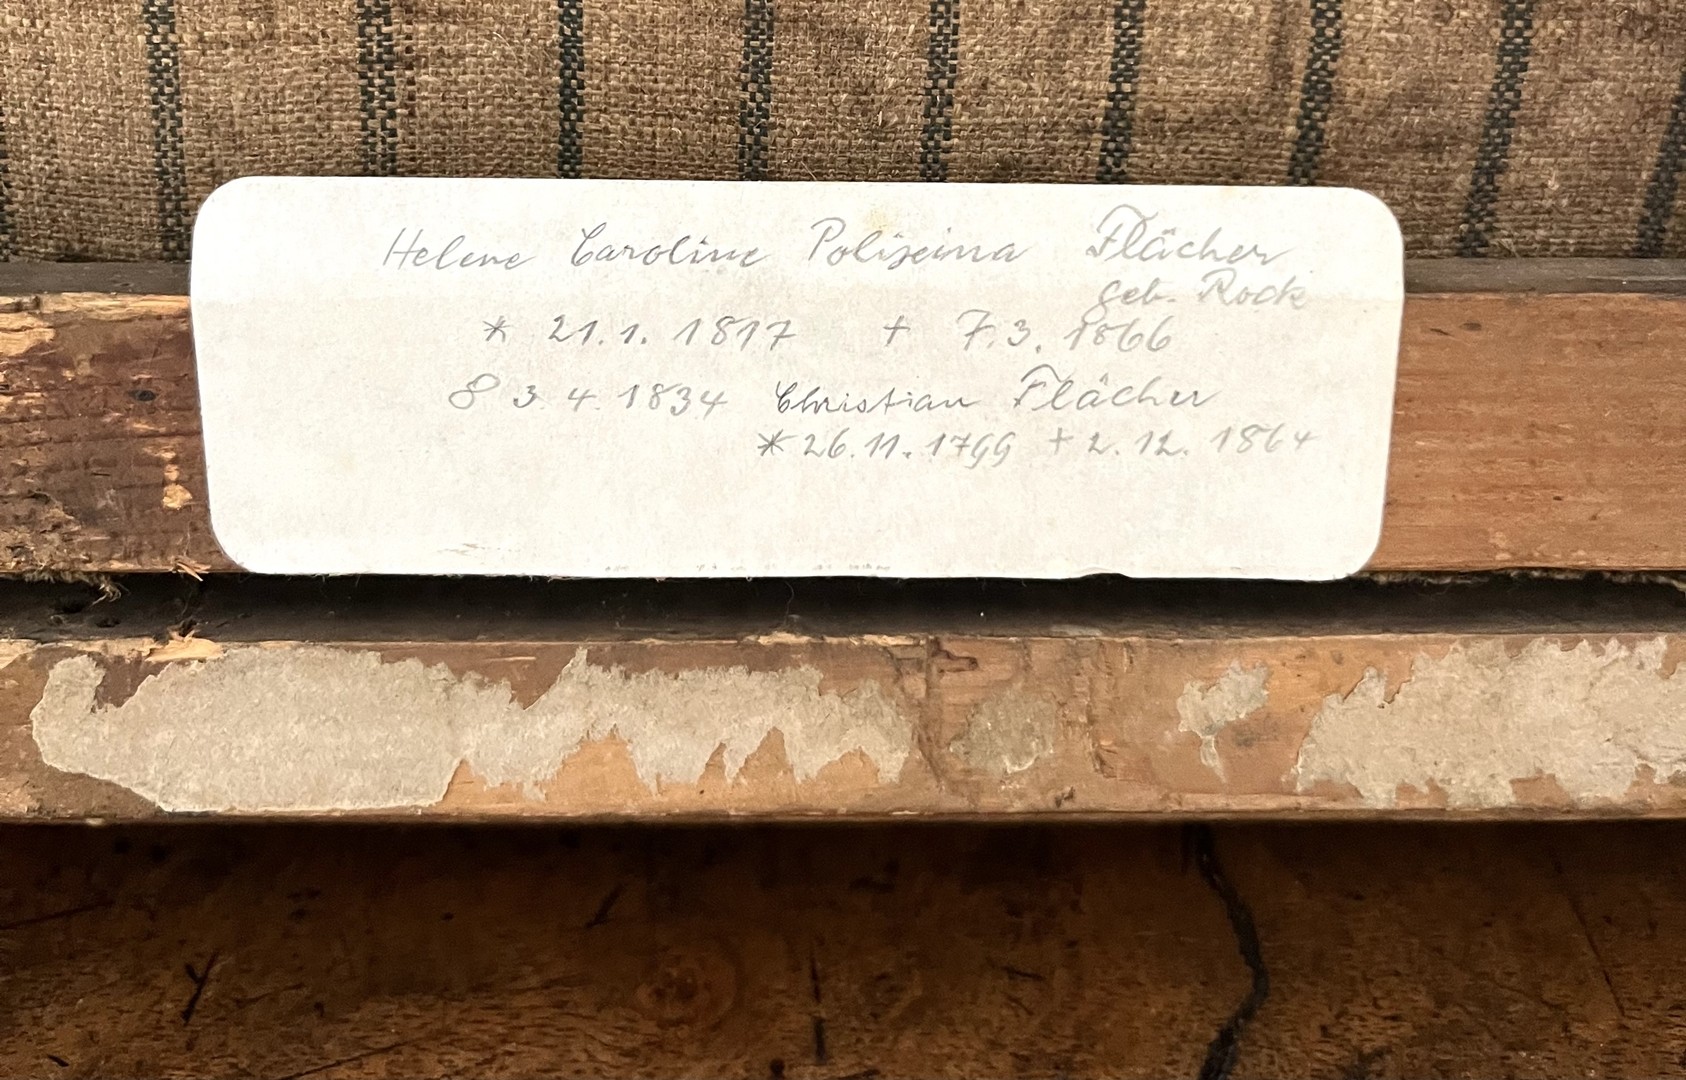 Helene Caroline Polizeina Flächer
geb. Rock
* 21.1.1817 + 7.3.1866
8 3.4.1834 Christian Flächer
* 26.11.1799 + 2.12.1864